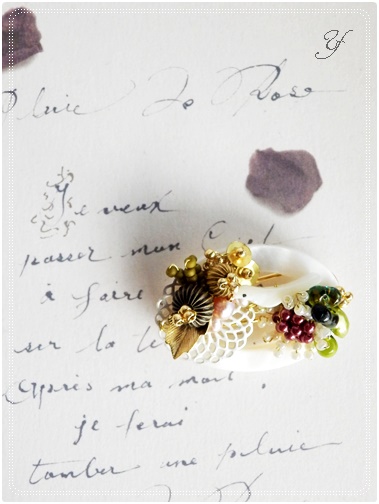 Yf
Pluie De Rose
Je veux
passer mon Ciel
à faire
sur la te
Après ma mort,
je ferai
tomber une pluie